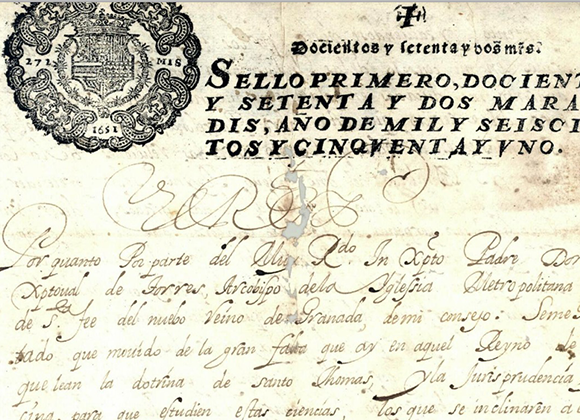 Docientos y setenta y dos mrs.
272 MIS
1651
SELLO PRIMERO, DOCIENT
Y SETENTA Y DOS MARA
DIS, AÑO DE MIL Y SEISCI
TOS Y CINQVENTA Y VNO.
Por quanto Por parte del Muy Rdo In Xpto Padre Don
Xptoual de torres Arcobispo de la Iglessia Metropolitana
de S.ta fee del nuebo Reino de Granada, de mi consejo: Seme s
tado que mouido de la gran falta que ay en aquel Reyno de
que lean la dotrina de santo thomas, y la Jurisprudencia
cina para que estudien estas ciencias, los que se inclinaren a